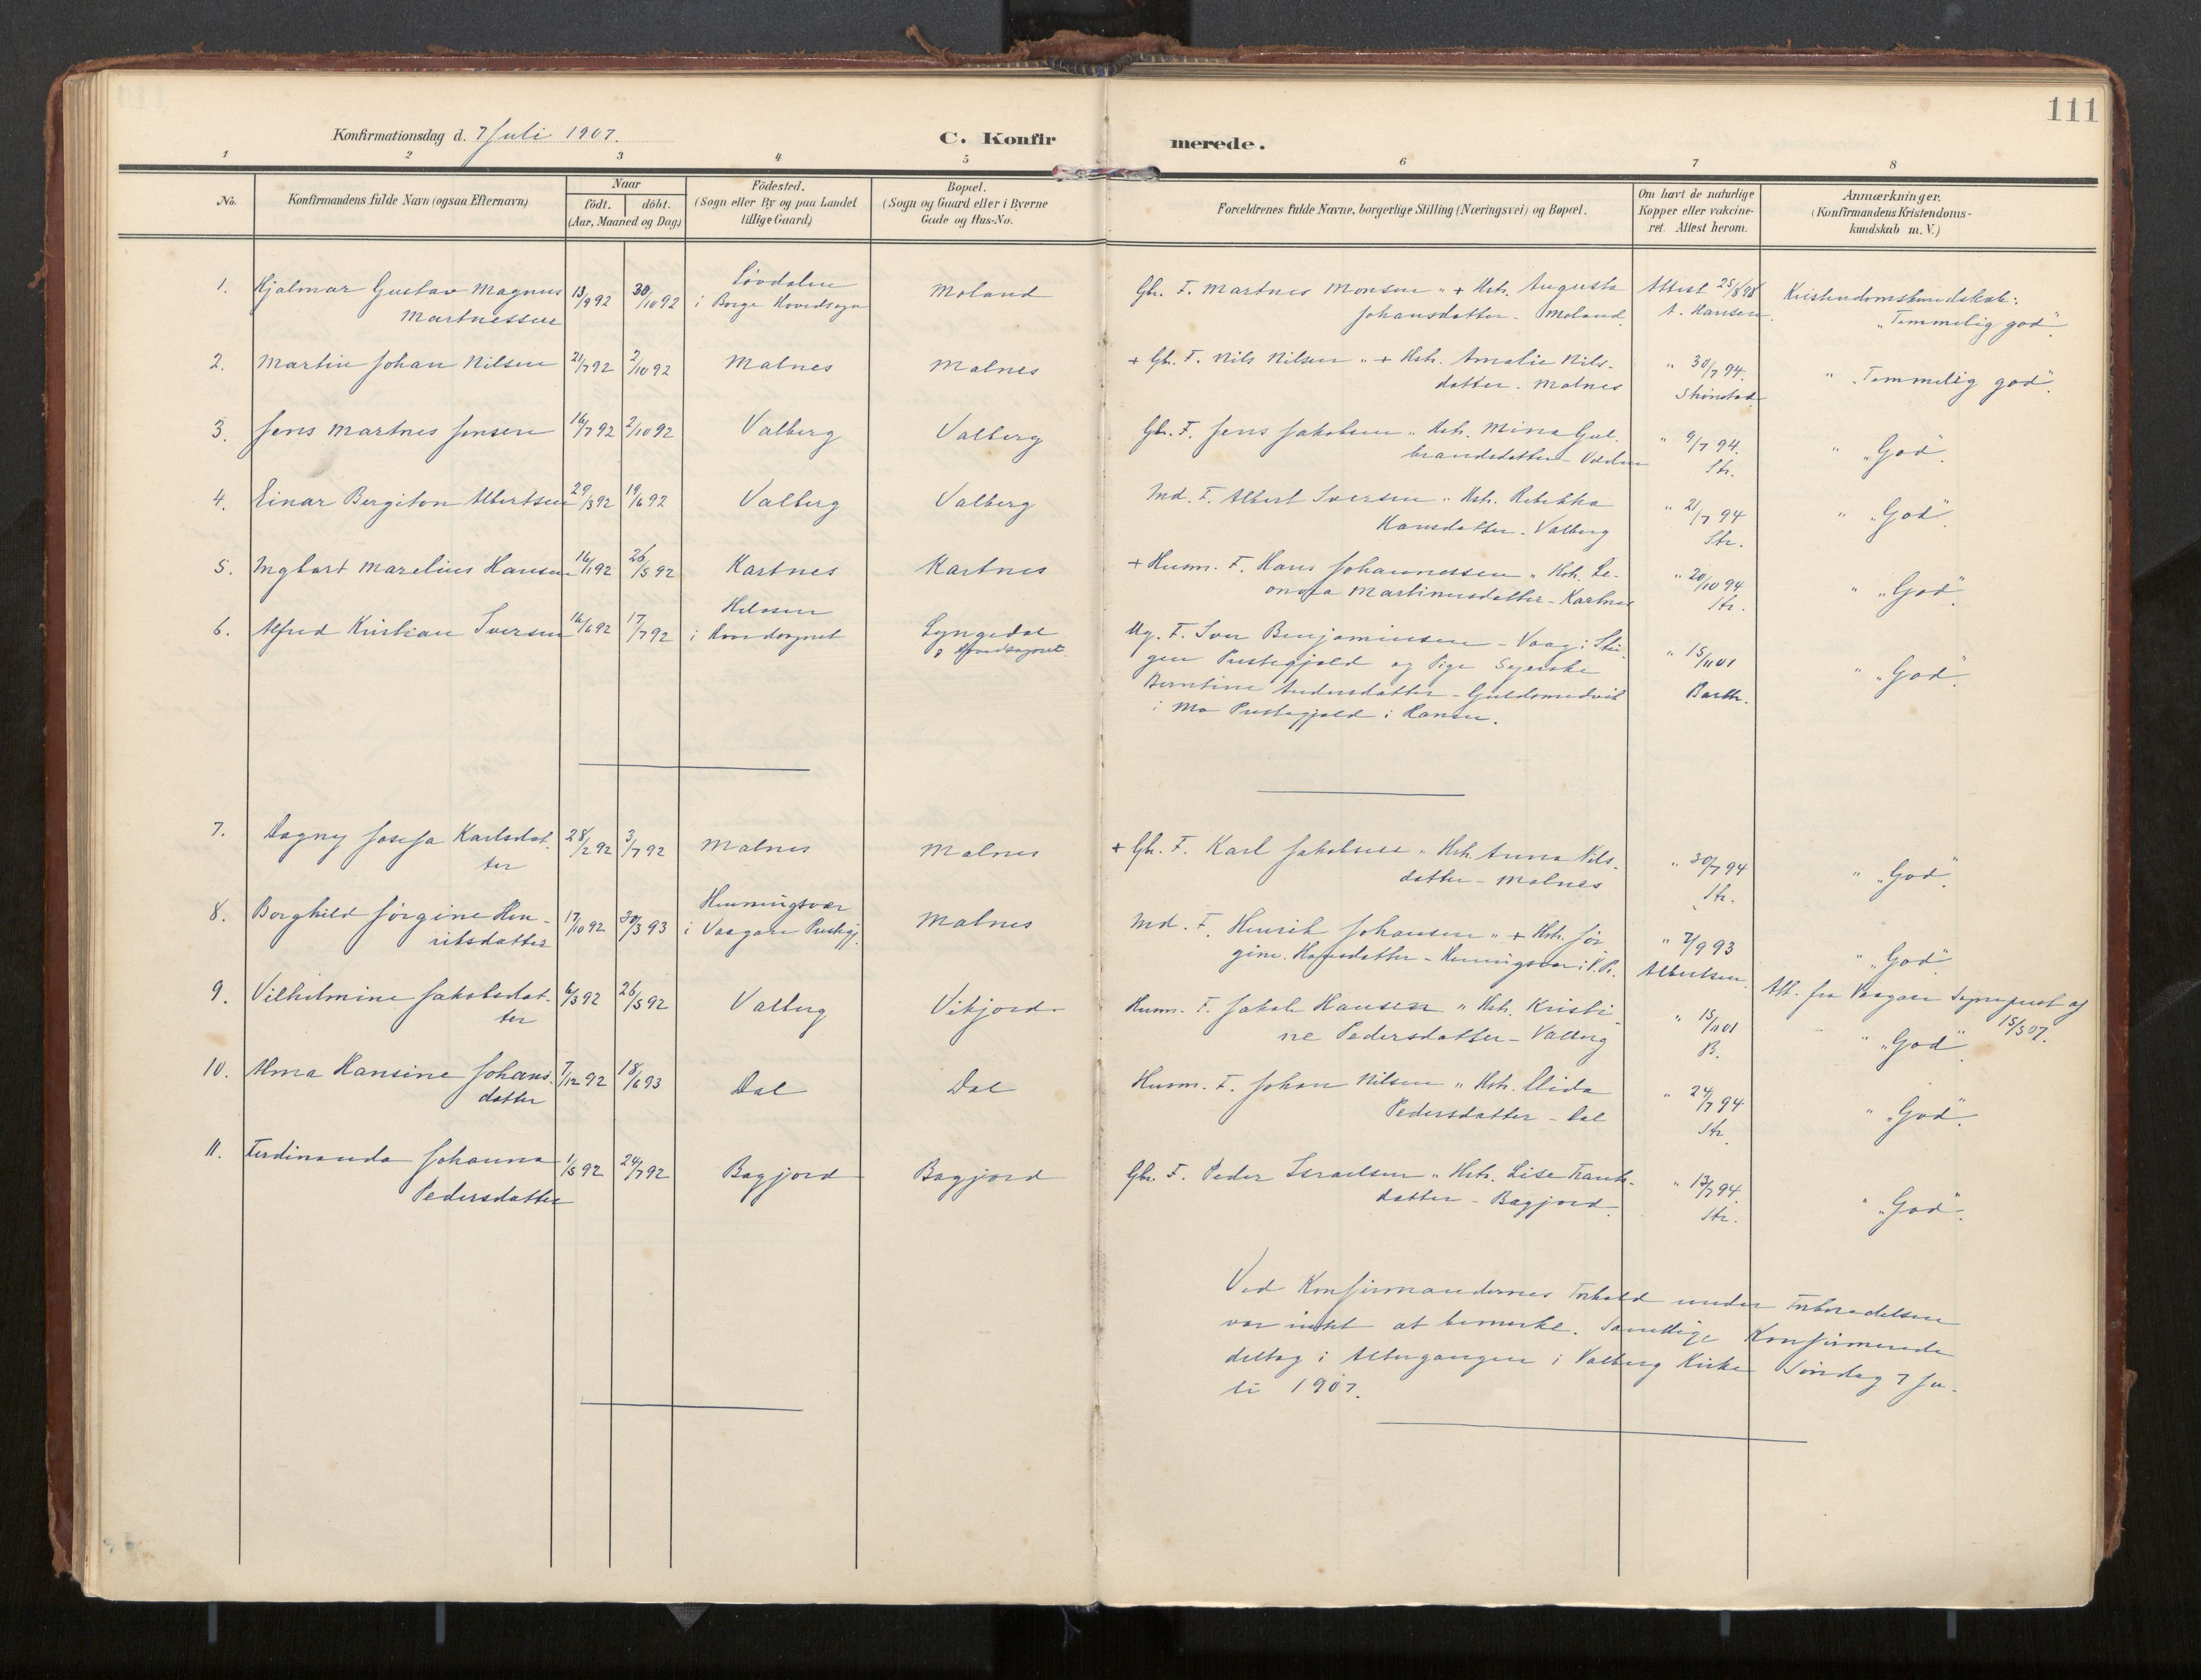 111
Konfirmationsdag d. 7 Juli 1907.
C. Konfirmerede.
1 2 3 4 5 6 7 8
No.
Konfirmandens fulde Navn (ogsaa Efternavn)
Naar
födt. döbt.
(Aar, Maaned og Dag)
Födested.
(Sogn eller By og paa Landet
tillige Gaard)
Bopæl.
(Sogn og Gaard eller i Byerne
Gade og Hus-No.
Forældrenes fulde Navne, borgerlige Stilling (Næringsvei) og Bopæl.
Om havt de naturlige
Kopper eller vakcine-
ret. Attest herom.
Anmærkninger.
(Konfirmandens Kristendoms-
kundskab m. V.)
1. Hjalmar Gustav Magnus
Martnessen
13/9 92 30/10 92
Løvdalen
i Borge Hovedsogn
Moland
Gbr. F. Martnes Monsen " + Hstr. Augusta
Johansdatter - Moland.
Attest 25/8 98
A. Hansen.
Kristendomskundskab:
"Temmelig god".
2. Martin Johan Nilsen 21/7 92 2/10 92 Malnes Malnes
+ Gbr. F. Nils Nilsen " + Hstr. Amalie Nils-
datter - Malnes
" 30/7 94.
Strønstad
" "Temmelig god".
3. Jens Martnes Jensen 16/7 92 2/10 92 Valberg Valberg
Gbr. F. Jens Jakobsen " Hstr. Mina Gul-
brandsdatter -
" 9/7 94.
Str.
" "God".
4. Einar Bergiton Albertsen 29/3 92 19/6 92 Valberg Valberg
Ind. F. Albert Iversen " Hstr. Rebekka
Hansdatter - Valberg
" 21/7 94
Str.
" "God".
5. Ingbart Marelius Hansen 16/1 92 26/5 92 Kartnes Kartnes
+ Husm. F. Hans Johannessen " Hstr. Le-
onora Martinusdatter - Kartnes
" 20/10 94
Str.
" "God".
6. Alfred Kristian Iversen 16/6 92 17/7 92
Helosen
i Hovedsognet
Lyngedal
i Hovedsognet
Ug. F. Iver Benjaminsen - Vaag i Stei-
gen Prestegjeld og Pige Seferske
Berntine Andersdatter - Guldsmedvik
i Mo Prestegjeld i Ranen.
" 15/11 01
Barth.
" "God".
7. Dagny Josefa Karlsdat-
ter
28/2 92 3/7 92 Malnes Malnes
+ Gbr. F. Karl Jakobsen " Hstr. Anna Nils-
datter - Malnes
" 30/7 94
Str.
" "God".
8. Borghild Jørgine Hen-
riksdatter
17/10 92 30/3 93
Henningsvær
i Vaagan Prestegj.
Malnes
Ind. F. Henrik Johansen " + Hstr. Jør
gine Hansdatter - Henningsvær i V. P.
" 7/9 93
Albertsen.
" "God".
Att. fra Vaagan Sogneprest af
15/5 07.
9. Vilhelmine Jakobsdat-
ter
6/3 92 26/5 92 Valberg Vikjord
Husm. F. Jakob Hansen " Hstr. Kristi
ne Pedersdatter - Valberg
" 15/11 01
B.
" "God".
10. Alma Hansine Johans-
datter
7/12 92 18/6 93 Dal Dal
Husm. F. Johan Nilsen " Hstr. Elida
Pedersdatter - Dal
" 24/7 94
Str.
" "God".
11. Ferdinanda Johanna
Pedersdatter
1/5 92 24/7 92 Bagjord Bagjord
Gbr. F. Peder Israelsen " Hstr. Lise Frants-
datter - Bagjord.
" 13/7 94.
Str.
" "God".
Ved Konfirmandernes Forhold under Forberedelsen
var intet at bemerke. Samtlige Konfirmerede
deltog i Altergangen i Valberg Kirke Søndag 7 Ju-
li 1907.